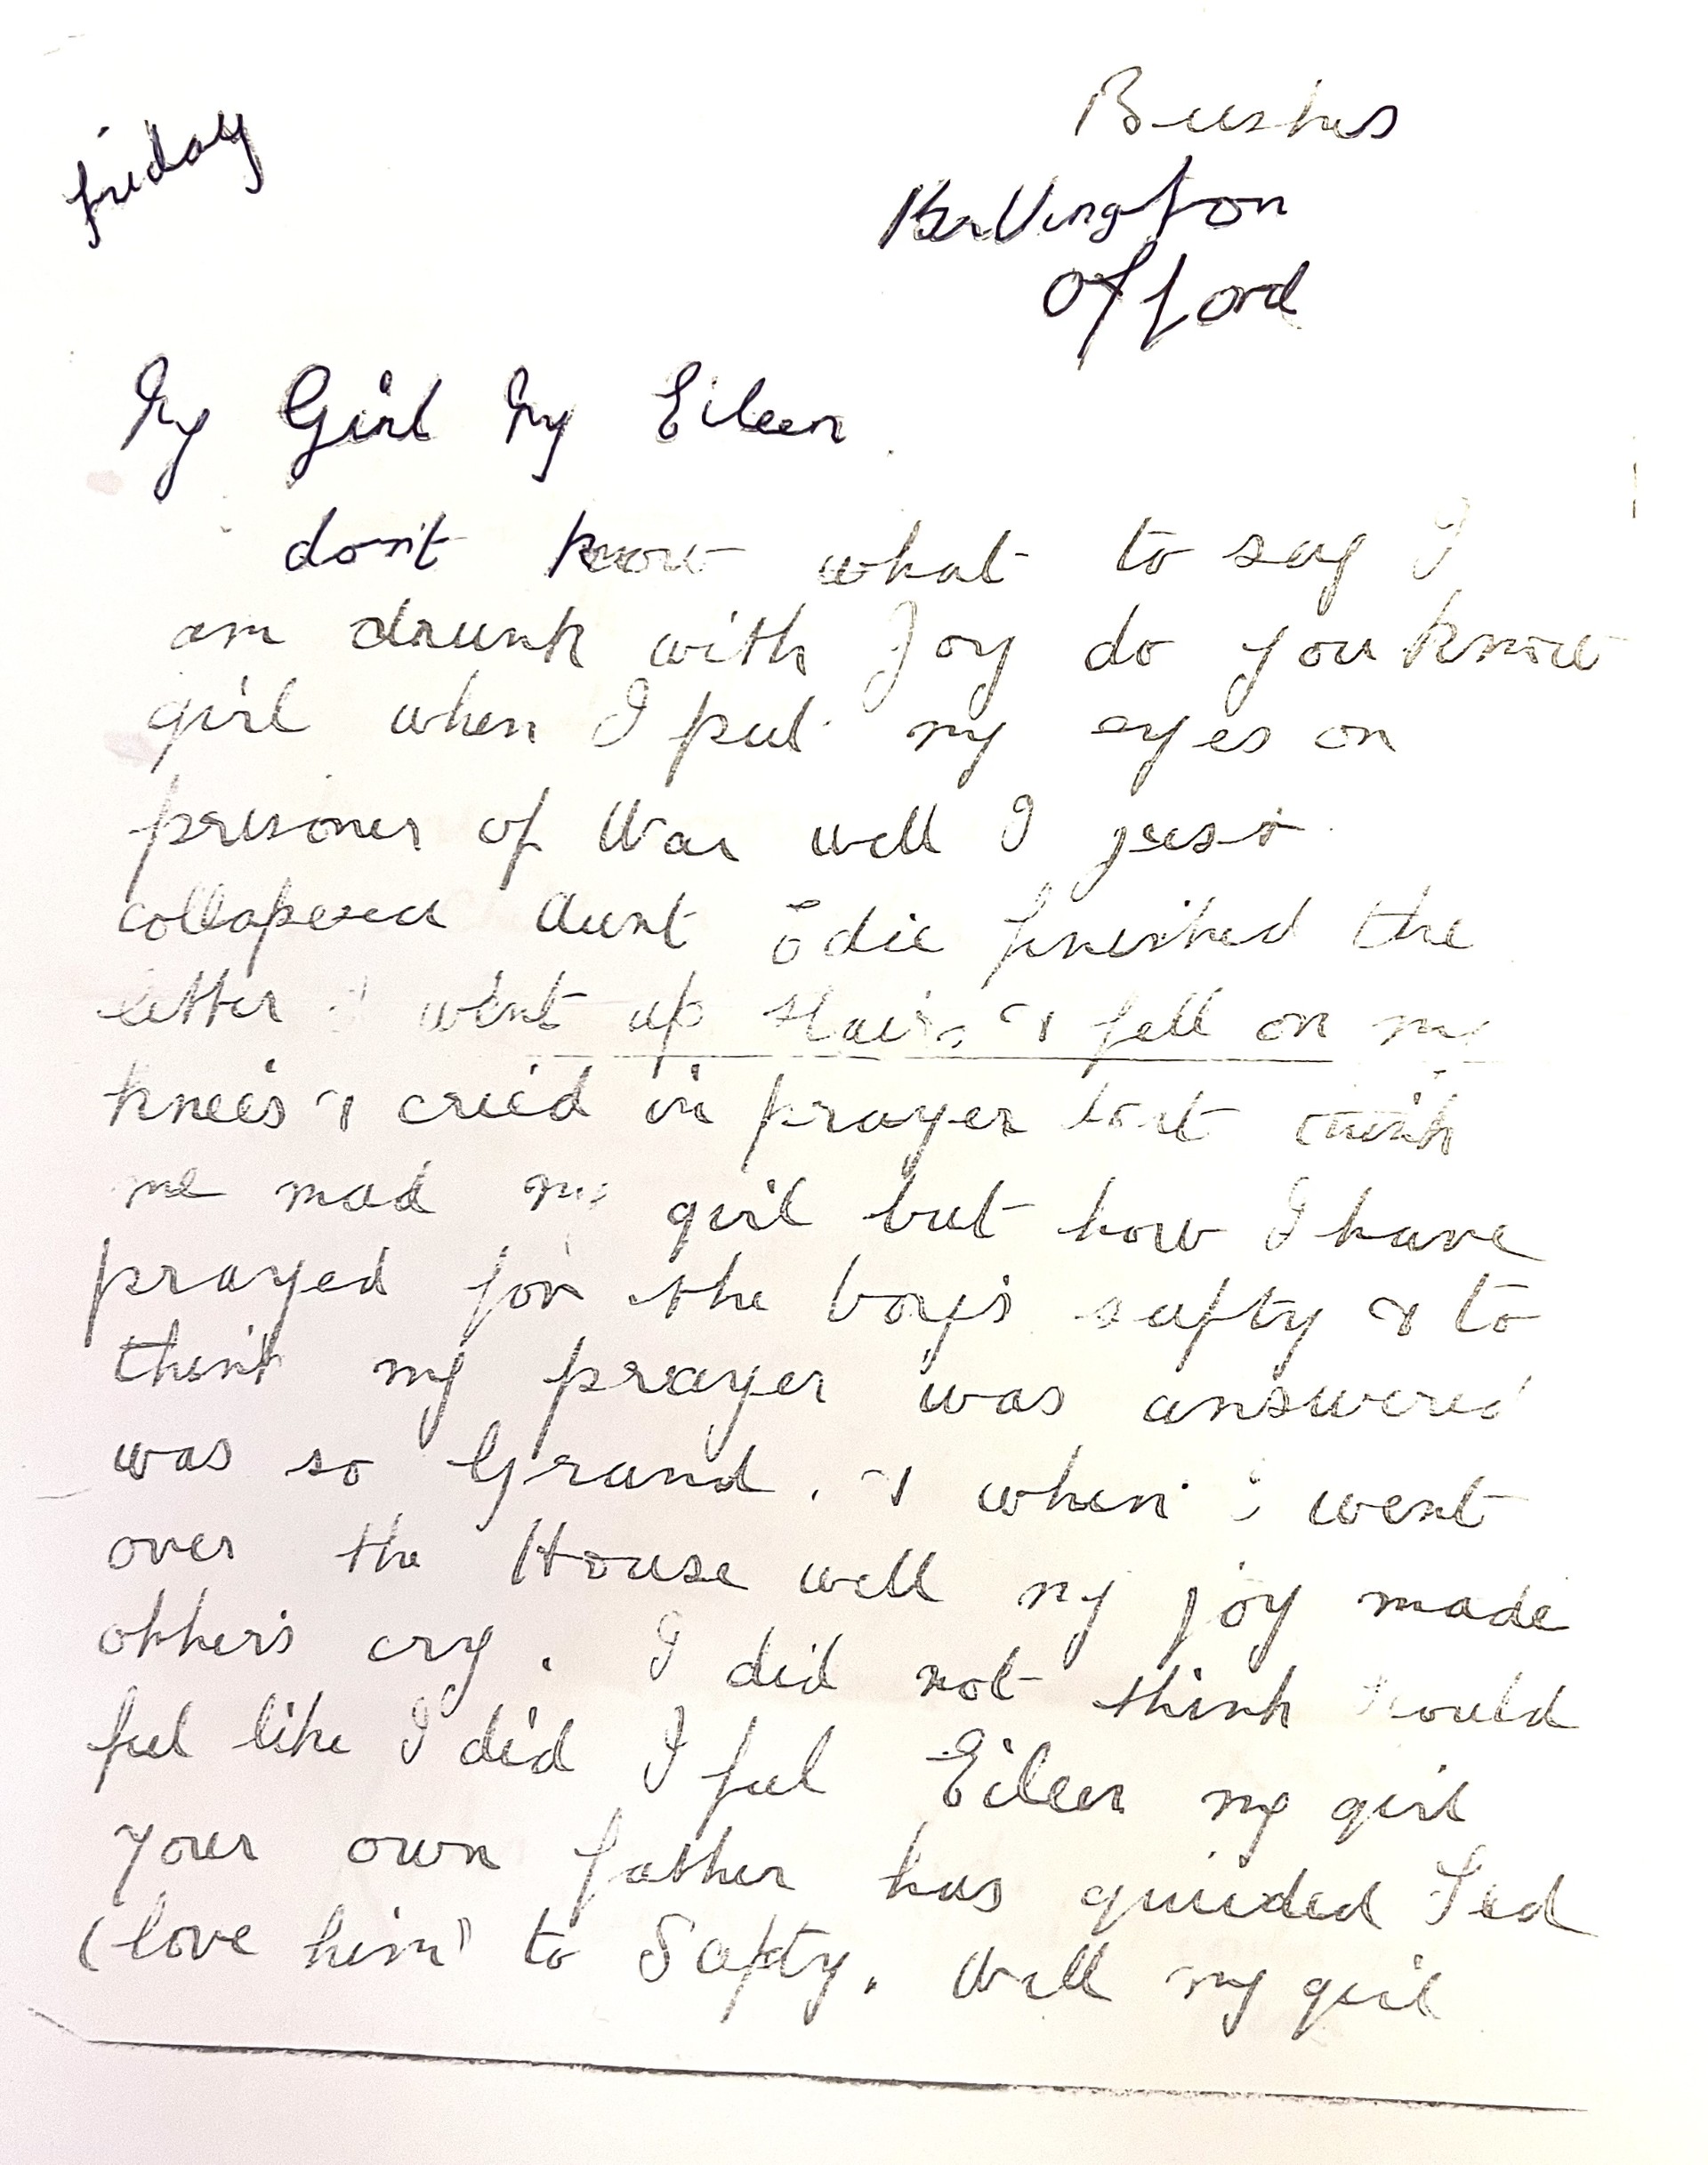 Friday
Bushes
Berrington
Oxford
My Girl My Eileen
don't know what to say I
am drunk with Joy do you know
girl when I put my eyes on
prisoner of War well I just
collapesed Aunt Edie finished the
letter I went up stairs & fell on my
knees & cried in prayer dont think
me mad my girl but how I have
prayed for the boy's safty & to
think my prayer was answered
was so Grand. & when i went
over the House well my joy made
others cry. I did not think I could
feel like I did I feel Eileen my girl
your own father has guided Ted
(love him) to Safty. Well my girl